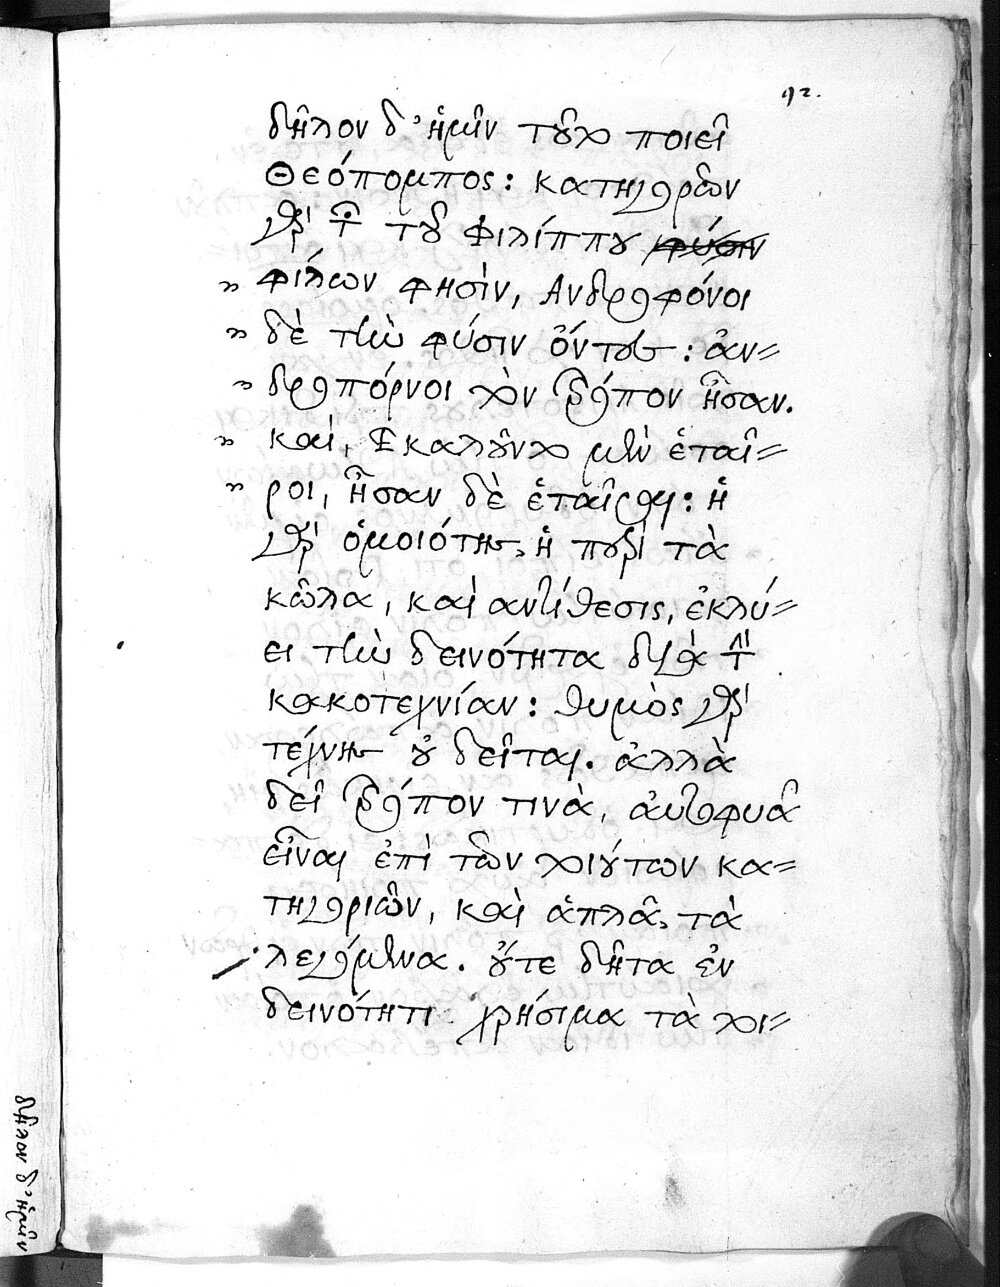 92.
δῆλον δ' ἡμῖν τοῦτο ποιεῖ
Θεόπομπος: κατηγορῶν
γὰρ τ̑ τοῦ Φιλίππου φύσιν
" φίλων φησὶν, Ἀνδροφόνοι
" δὲ τὴν φύσιν ὄντες: ἀν=
" δροπόρνοι τὸν τρόπον ἦσαν.
" καὶ, Ἐκαλοῦντο μὲν ἑταῖ=
" ροι, ἦσαν δὲ ἑταῖραι: ἡ
γὰρ ὁμοιότης, ἡ περὶ τὰ
κῶλα, καὶ αντίθεσις, ἐκλύ=
ει τὴν δεινότητα διὰ τ̀
κακοτεχνίαν: θυμὸς γὰρ
τέχνης οὐ δεῖται. ἀλλὰ
δεῖ τρόπον τινὰ, αὐτοφυᾶ
εἶναι ἐπὶ τῶν τοιούτων κα=
τηγοριῶν, καὶ ἁπλᾶ, τὰ
λεγόμενα. οὔτε δῆτα ἐν
δεινότητι χρήσιμα τὰ τοι=
δῆλον δ' ἡμῖν